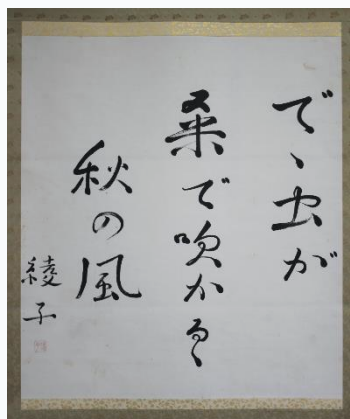 でゝ虫が
桑で吹かるゝ
秋の風
綾子